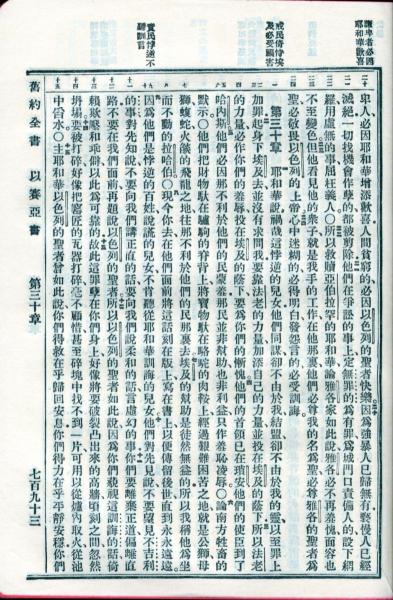 謙卑者必因
耶和華歡喜
戒民倚恃埃
及必受國害
責民悖逆不
聽訓言
卑人必因耶和華增添歡喜人間貧窮的必因以色列的聖者快樂因爲強暴人已歸無有褻慢人已經
滅絕一切找機會作孽的都被剪除他們在爭訟的事上定無罪的爲有罪爲城門口責備人的設下網
羅用虛無的事屈枉義人〇所以救贖亞伯拉罕的耶和華論雅各家如此說雅各必不再羞愧面容也
不至變色但他看見他的衆子就是我手的工作在他那裏他們必尊我的名爲聖必尊雅各的聖者爲
聖必敬畏以色列的上帝心中迷糊的必得明白發怨言的必受訓誨
第三十章 耶和華說禍哉這悖逆的兒女他們同謀卻不由於我結盟卻不由於我的靈以至罪上
加罪起身下埃及去並沒有求問我要靠法老的力量加添自己的力量並投在埃及的蔭下所以法老
的力量必作你們的羞辱投在埃及的蔭下要爲你們的慚愧他們的首領已在瑣安他們的使臣到了
哈內斯他們必因那不利於他們的民蒙羞那民並非幫助也非利益只作羞恥凌辱〇論南方牲畜的
默示〇他們把財物馱在驢駒的脊背上將寶物馱在駱駝的肉鞍上經過艱難困苦之地就是公獅母
獅蝮蛇火焰的飛龍之地往那不利於他們的民那裏去埃及的幫助是徒然無益的所以我稱他爲坐
而不動的拉哈伯〇現今你去在他們面前將這話刻在版上寫在書上以便傳留後世直到永永遠遠
因爲他們是悖逆的百姓說謊的兒女不肯聽從耶和華訓誨的兒女他們對先見說不要望見不吉利
的事對先知說不要向我們講正直的話要向我們說柔和的話言虛幻的事你們要離棄正道偏離直
路不要在我們面前再提說以色列的聖者所以以色列的聖者如此說因爲你們藐視這訓誨的話倚
賴欺壓和乖僻以此爲可靠的故此這罪孽在你們身上好像將要破裂凸出來的高牆頃刻之間忽然
坍塌要被打碎好像把窰匠的瓦器打碎毫不顧惜甚至碎塊中找不到一片可用以從爐內取火從池
中舀水〇主耶和華以色列的聖者曾如此說你們得救在乎歸回安息你們得力在乎平靜安穩你們
舊約全書 以賽亞書 第三十章 七百九十三